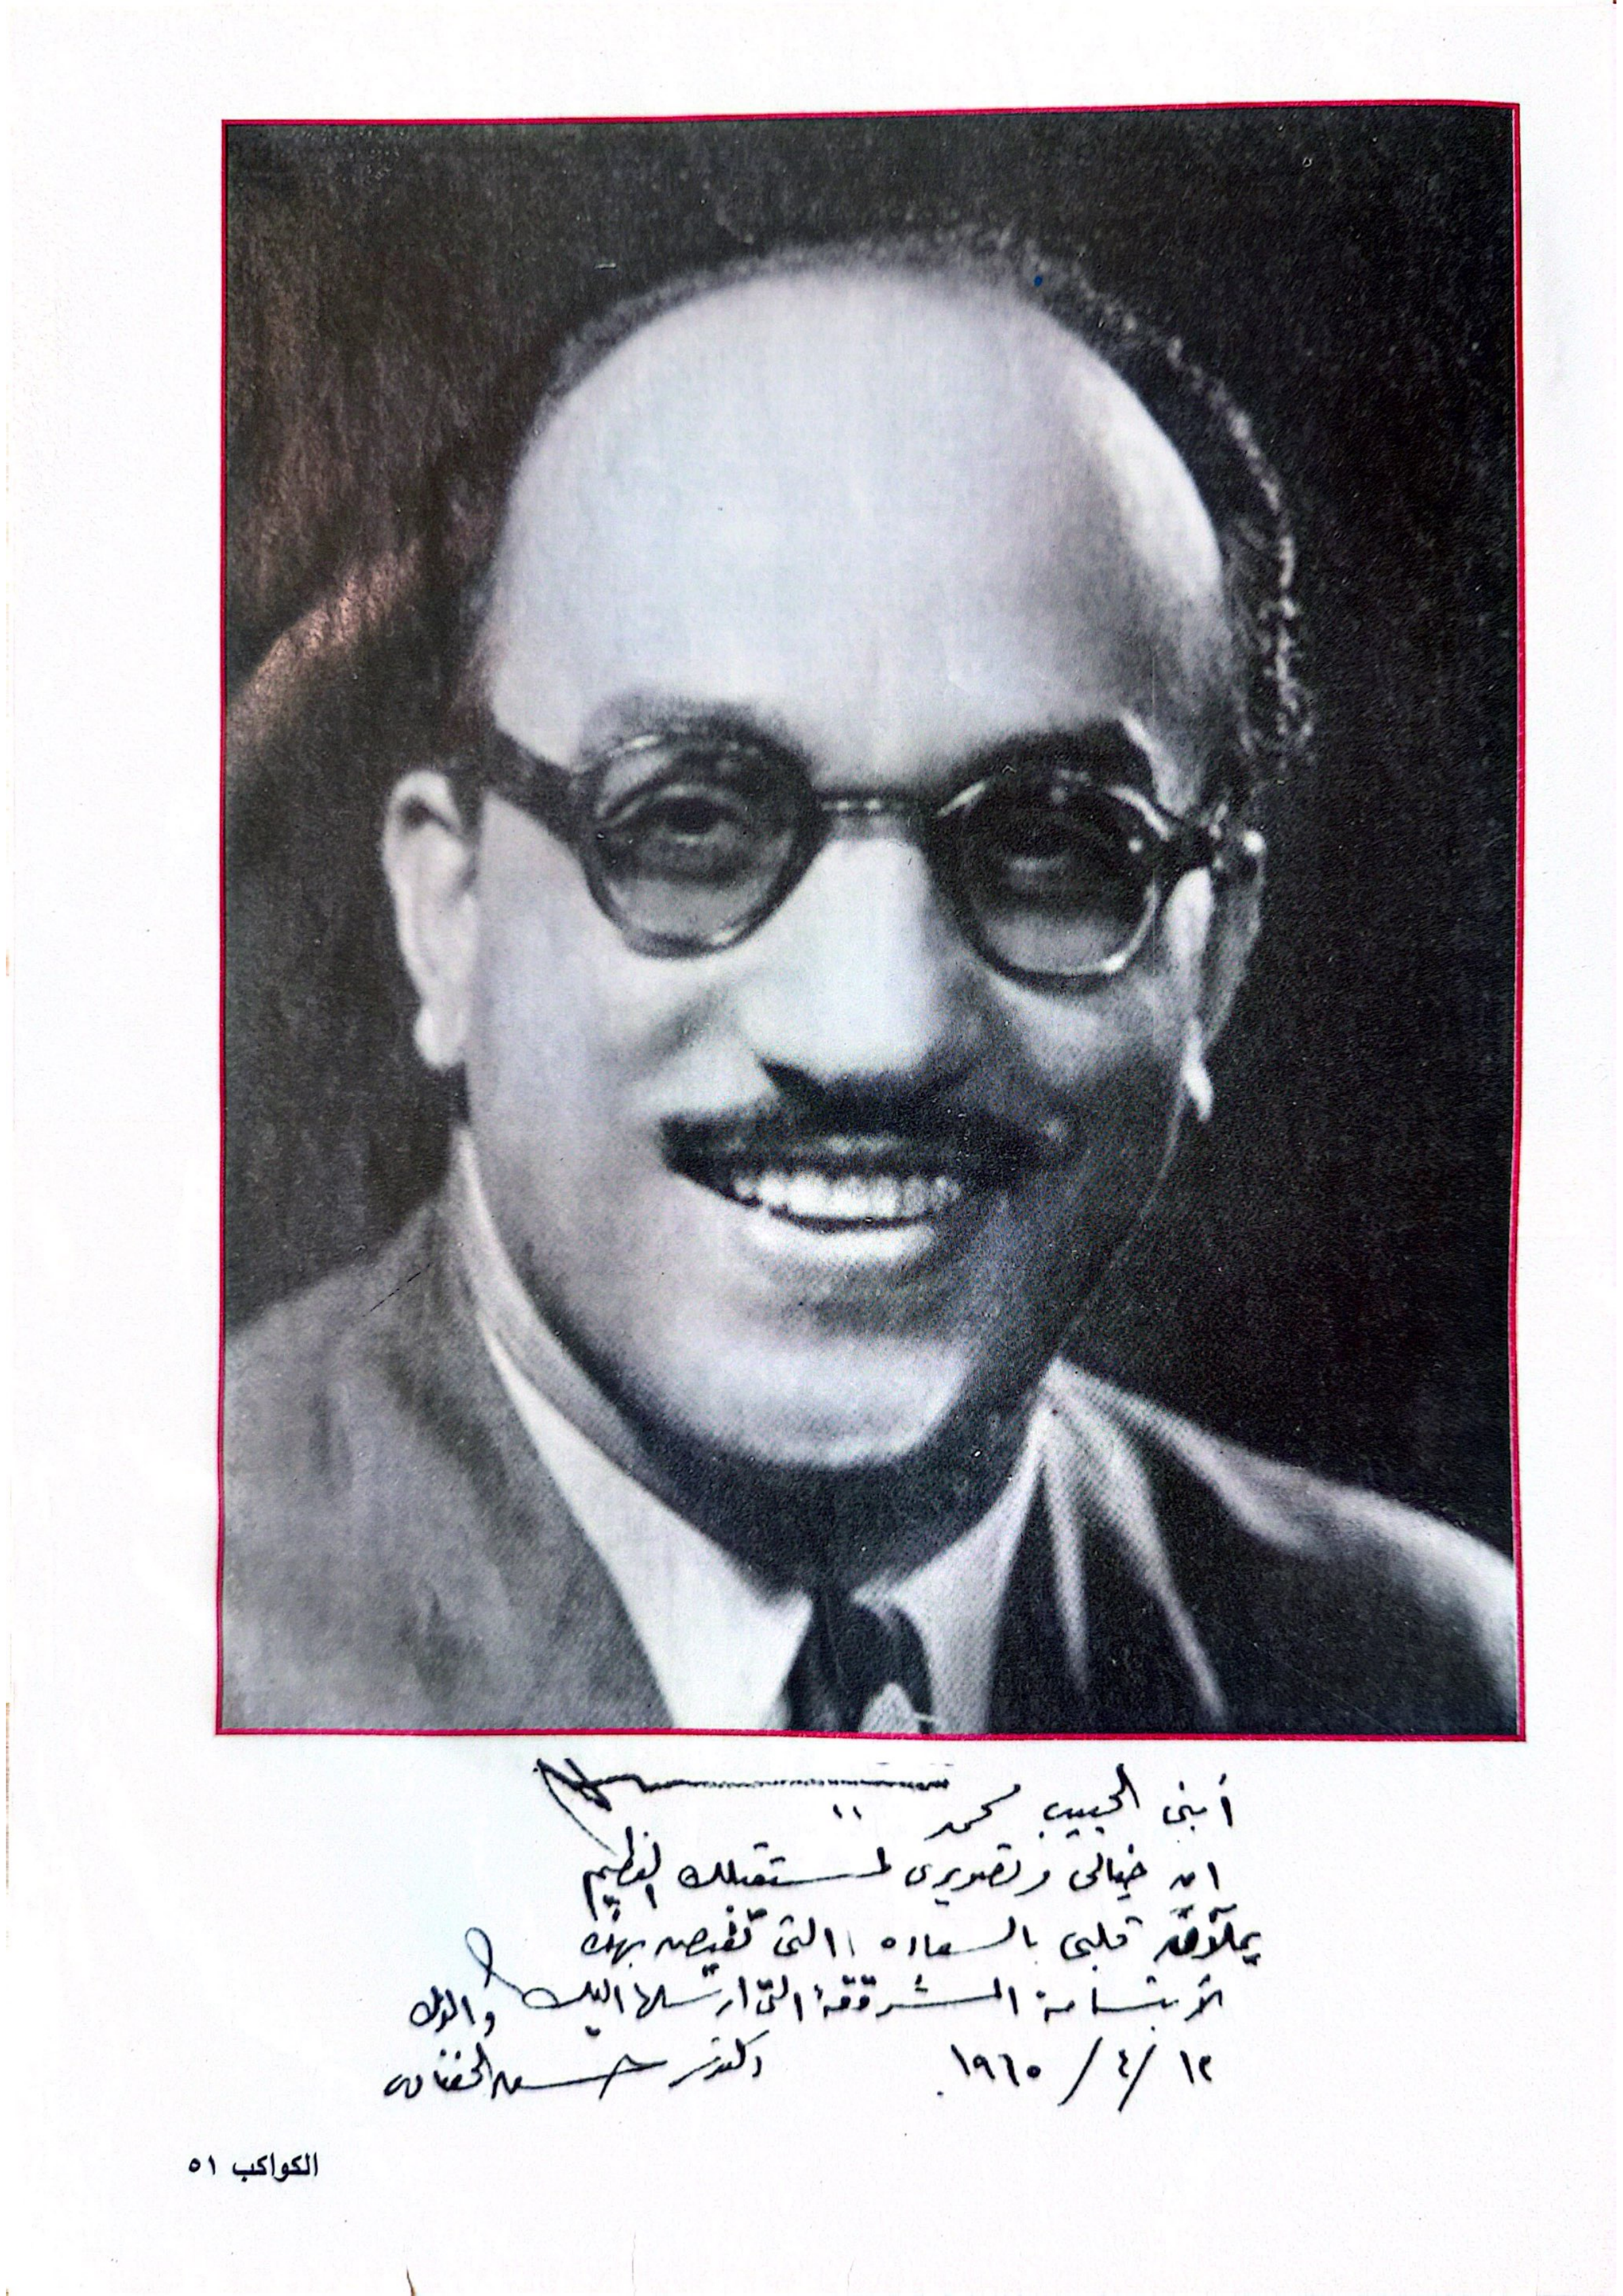 أبنى الحبيب محمد
ان خيالى وتصويرى لمستقبلك العظيم
يملآن قلبى بالسعاده التى تفيض بهذه
الأبتسامة المشرقة التى ارسلها اليك والدك
١٢ / ٤ / ١٩٦٥ دكتور حسن الحفناوى
الكواكب ٥١